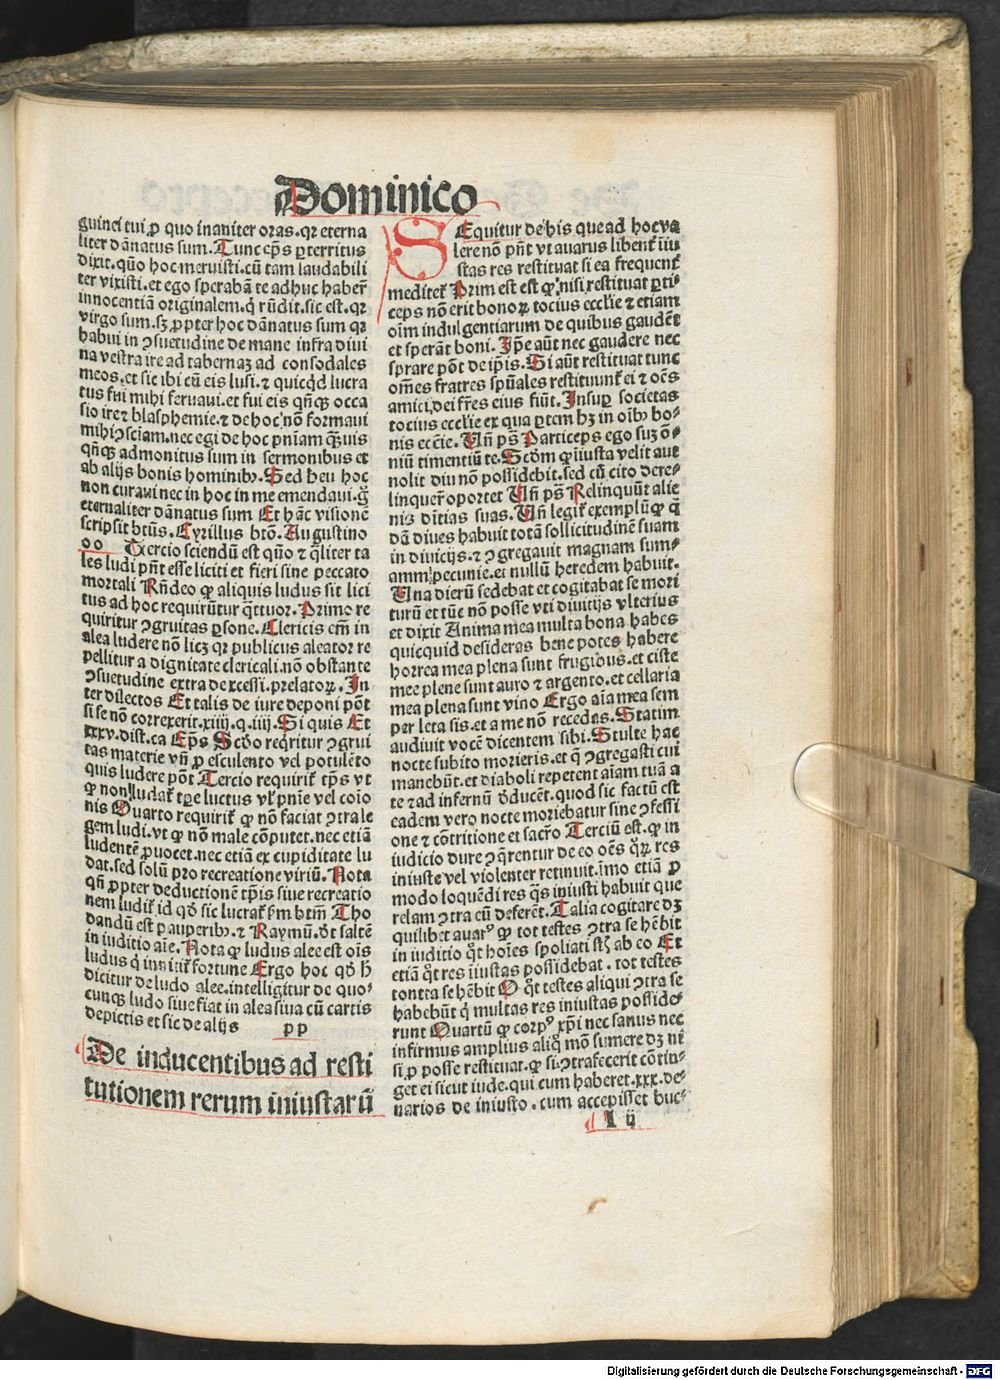 Dominico
guinei tui ꝓ quo inaniter oras.qꝛ eterna
liter dānatus sum.Tunc ep̄s ꝑterritus
dixit.quō hoc meruisti.cū tam laudabili
ter vixisti.et ego sperabā te adhuc haber̄
innocentiā originalem.q̇ rn̄dit.sic est.qꝛ
virgo sum.sꝫ ꝓpter hoc dānatus sum qꝛ
habui in ↄsuetudine de mane infra diui
na vestra ire ad tabernaꝫ ad consodales
meos.et sic ibi cū eis lusi.⁊ quicq̇d lucra
tus fui mihi seruaui.et fui eis qn̄qꝫ occa
sio ire⁊ blasphemie.⁊ de hoc nō formaui
mihi ↄsciam.nec egi de hoc pniam qꝫuis
qn̄qꝫ admonitus sum in sermonibus et
ab alijs bonis hominibꝫ.Sed heu hoc
non curaui nec in hoc in me emendaui.g̊
eternaliter dānatus sum Et hāc visionē
scripsit btūs.Cyrillus btō.Augustino
oo Tercio sciendū est quō ⁊ q̄liter ta
les ludi pn̄t esse liciti et fieri sine peccato
mortali Rn̄deo ꝙ aliquis ludus sit lici
tus ad hoc requirūtur q̄ttuor.Primo re
quiritur ↄgruitas ꝑsone.Clericis em̄ in
alea ludere nō licꝫ qꝛ publicus aleator re
pellitur a dignitate clericali.nō obstante
ↄsuetudine extra de excessi.prelatoꝝ.In
ter dilectos Et talis de iure deponi pōt
si se nō correxerit.xiiij.q.iiij.Si quis Et
xxxv.dist.ca Ep̄s Scd̄o reqritur ↄgrui
tas materie vn̄ ꝓ esculento vel potulēto
quis ludere pōt Tercio requirit̄ tp̄s vt
ꝙ non ludat̄ tꝑe luctus vl̓ pn̄ie vel coīo
nis Quarto requirit̄ ꝙ nō faciat ↄtra le
gem ludi.vt ꝙ nō male cōputet.nec etiā
ludentē ꝓuocet.nec etiā ex cupiditate lu
dat.sed solū pro recreatione viriū.Nota
qn̄ ꝓpter deductionē tp̄is siue recreatio
nem ludit̄ id qd̄ sic lucrat̄ ẜm btm̄ Tho
dandū est pauperibꝫ.⁊ Raymū.dt̄ saltē
in iuditio aīe.Nota ꝙ ludus alee est oīs
ludus q̇ innitit̄ fortune Ergo hoc qd̄ h̄
dicitur de ludo alee.intelligitur de quo⸗
cunqꝫ ludo siue fiat in alea siua cū cartis
depictis et sic de alijs pp
De inducentibus ad resti
tutionem rerum iniustarū
SEquitur de his que ad hoc va
lere nō pn̄t vt auarus libent̄ iiu
stas res restituat si ea frequent̄
meditet̄ Prim est est ꝙ nisi restituat ꝑti⸗
ceps nō erit bonoꝝ tocius eccl̄ie ⁊ etiam
oīm indulgentiarum de quibus gaudēt
et sperāt boni.Ip̄e aūt nec gaudere nec
sprare pōt de ip̄is.Si aūt restituat tunc
om̄es fratres spūales restituunt̄ ei ⁊ oēs
amici dei fr̄es eius fiūt.Insuꝑ societas
tocius eccl̄ie ex qua ꝑtem hꝫ in oībꝫ bo⸗
nis eccīe.Vn̄ ps̄ Particeps ego suꝫ ō⸗
niū timentiū te.Scd̄m ꝙ iiusta velit aut
nolit diu nō possidebit.sed cū cito dere⸗
linquer̄ oportet Vn̄ ps̄ Relinquūt alie
nis dītias suas.Vn̄ legit̄ exemplū ꝙ q̄
dā diues habuit totā sollicitudinē suam
in diuicijs.⁊ ↄgregauit magnam sum⸗
amm pecunie.ei nullū heredem habuit.
Vna dierū sedebat et cogitabat se mori
turū et tūc nō posse vti diuitijs vlterius
et dixit Anima mea multa bona habes
quicquid desideras bene potes habere
horrea mea plena sunt frugibus.et ciste
mee plene sunt auro ⁊ argento.et cellaria
mea plena sunt vino Ergo aīa mea sem
per leta sis.et a me nō recedas.Statim
audiuit vocē dicentem sibi.Stulte hac
nocte subito morieris.et q̄ ↄgregasti cui
manebūt.et diaboli repetent aīam tuā a
te ⁊ ad infernū d̓ducēt.quod sic factū est
eadem vero nocte moriebatur sine ↄfessi
one et cōtritione et sacr̄o Terciū est.ꝙ in
iudicio dure ↄq̄rentur de eo oēs q̄ꝝ res
iniuste vel violenter retinuit.īmo etiā ꝓ
modo loquēdi res q̄s iniusti habuit que
relam ↄtra eū deferēt.Talia cogitare dꝫ
quilibet auarꝰ ꝙ tot testes ↄtra se hēbit
in iuditio q̊t hoīes spoliati st̄ ab eo Et
etiā q̊t res iiustas possidebat.tot testes
contra se hēbit O q̊t testes aliqui ↄtra se
habebūt q̇ multas res iniustas posside⸗
runt Quartū ꝙ corpꝰ xp̄i nec sanus nec
infirmus amplius aliqͦ mō sumere dꝫ ni
si ꝓ posse restituat.ꝙ si ↄtrafecerit cōtin⸗
get ei sicut iude.qui cum haberet.xxx.de⸗
narios de iniusto.cum accepisset buc⸗
l ij
Digitalisierung gefördert durch die Deutsche Forschungsgemeinschaft - DFG